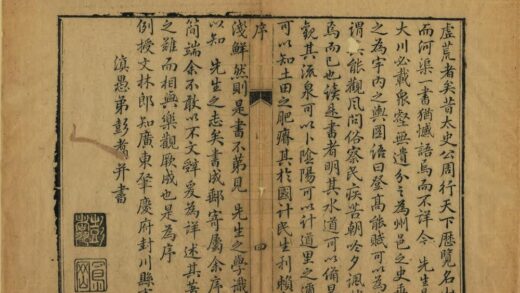 虛荒者矣昔太史公周行天下歷覽名
而河渠一書猶憾語焉而不詳今 先生是
大川必載眾壑無遺分之為州邑之史乘
之為宇内之輿圖語曰登高能賦可以為
謂其能觀風問俗察民疾苦朝吟夕諷
焉而已也讀是書者明其水道可以備旱
觀其流泉可以卜陰陽可以計道里之
可以知土田之肥瘠其於國計民生利賴
序 四
淺鮮然則是書不第見 先生之學識
以知 先生之志矣書成郵寄屬余序
簡端余不敢以不文辭爰為詳述其著
之難而相與樂觀厥成也是為序
例授文林郎知廣東肇慶府封川縣
滇愚弟彭翥并書
彭翥